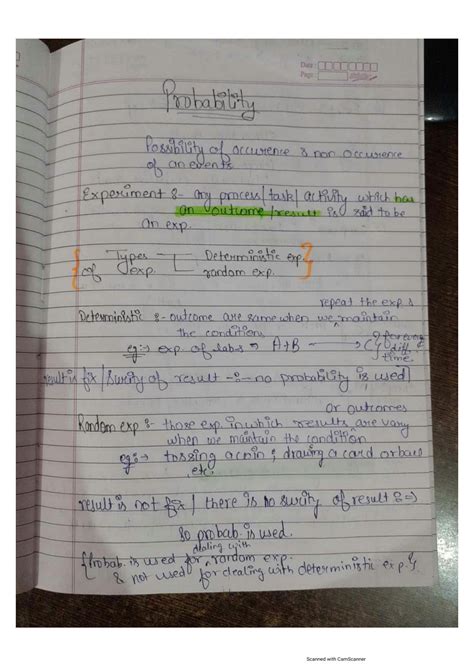 Date :
Page :
Probability
Possibility of occurence & non occurence
of an events
Experiment :- any process/task/activity which has
an outcome/result is said to be
an exp.
Types of exp.
Deterministic exp.
random exp.
repeat the exp &
Deterministic :- outcome are same when we maintain
the condition
eg:- exp. of labs → A+B → C} for any
diff
time
result is fix/surity of result -:- no probability is used]
or outcomes
Random exp :- those exp. in which results are vary
when we maintain the condition
eg:→ tossing a coin ; drawing a card or ball
etc.
result is not fix / there is no surity of result :⇒
so probab. is used.
dealing with
{Probab. is used for random exp.
& not used for dealing with deterministic exp.}
Scanned with CamScanner